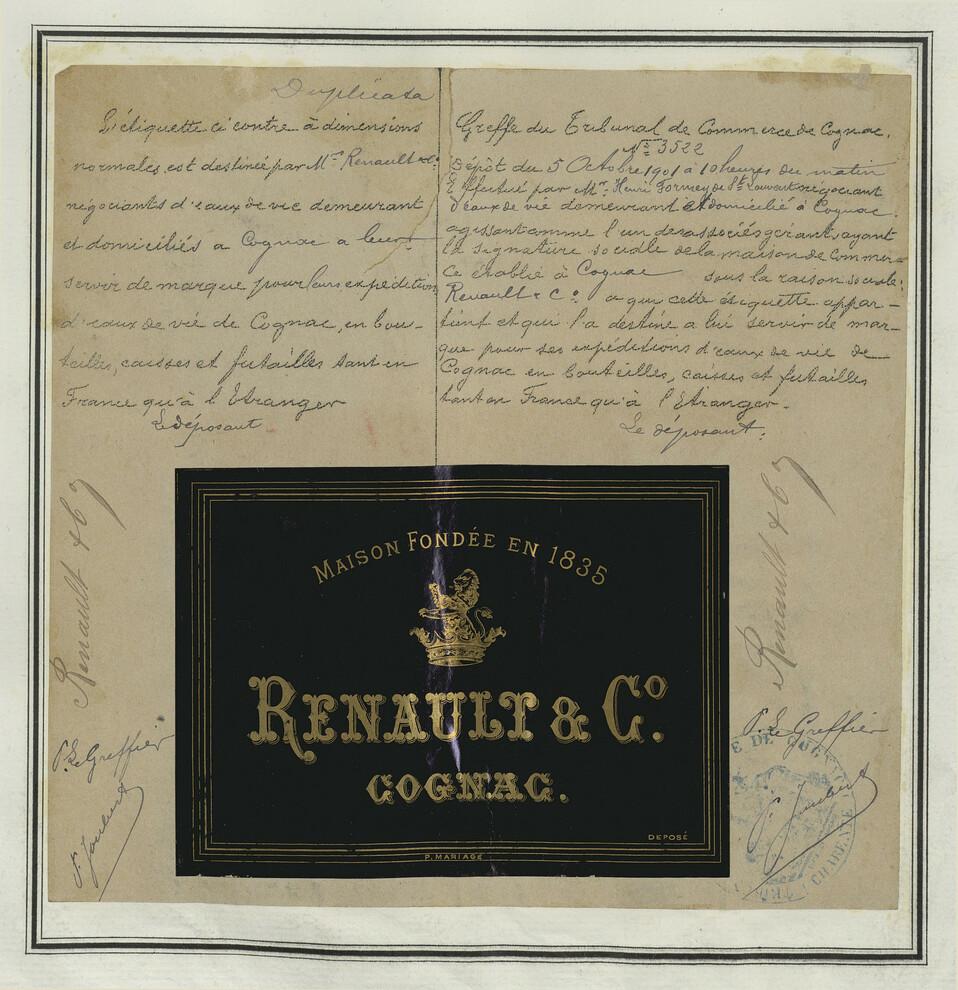 Duplicata
L'étiquette ci contre à dimensions
normales est destinée par Mrs Renault & Co
négociants d'eaux de vie demeurant
et domiciliés a Cognac a leur
servir de marque pour leurs expéditions
d'eaux de vie de Cognac, en bou-
teilles, caisses et futailles tant en
France qu'à l'Etranger
Le déposant
Renault & Co
P. Le Greffier
Greffe du Tribunal de Commerce de Cognac.
No 3522
Dépôt du 5 Octobre 1901 à 10 heures du matin
Effectué par Mr. Henri Formey de St Louvent négociant
d'eaux de vie demeurant et domicilié à Cognac.
agissant comme l'un des associés gérants, ayant
la signature sociale de la maison de Commer-
ce établie à Cognac sous la raison sociale:
Renault & Co. a qui cette étiquette appar-
tient et qui l'a destiné a lui servir de mar-
que pour ses expéditions d'eaux de vie de
Cognac en bouteilles, caisses et futailles
tant en France qu'à l'Etranger.
Le déposant:
Renault & Co
P. Le Greffier
MAISON FONDÉE EN 1835
RENAULT & Co.
COGNAC.
DEPOSÉ
P. MARIAGE
DE COGNAC
CHARENTE